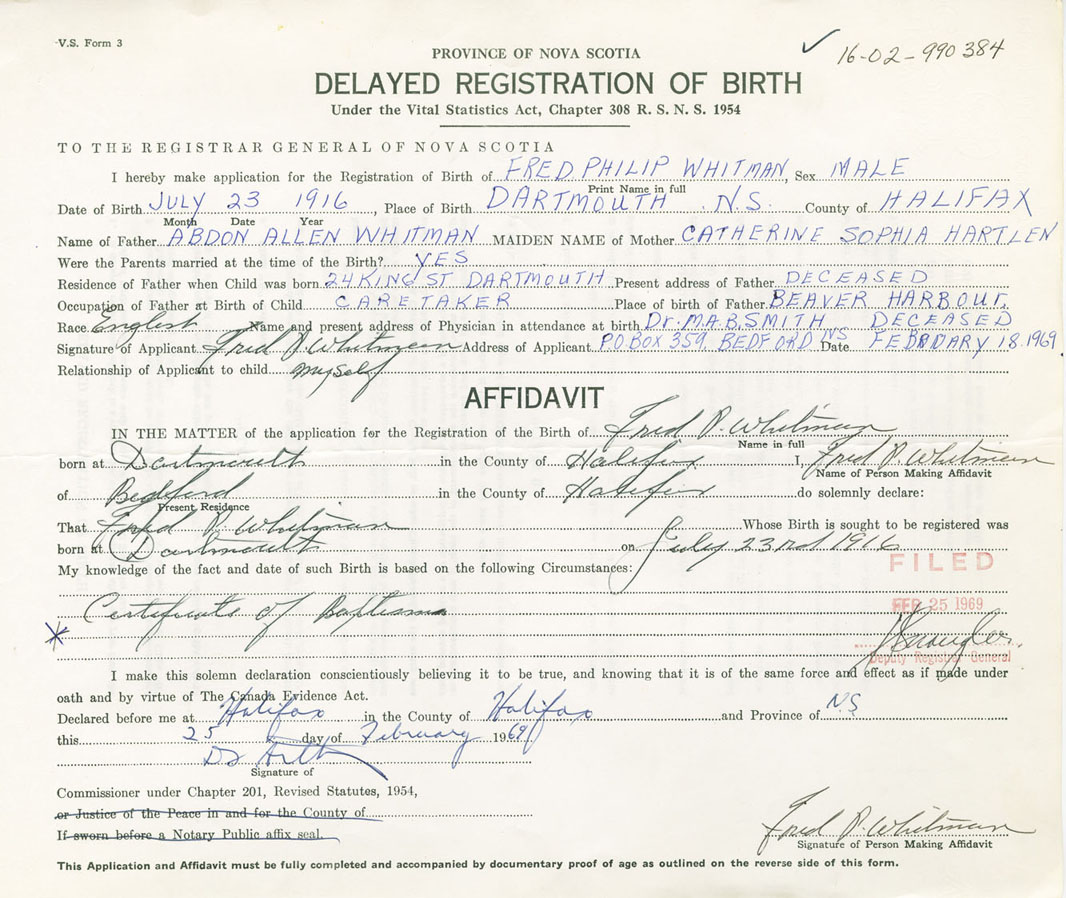 V.S. Form 3
16-02-990384
PROVINCE OF NOVA SCOTIA
DELAYED REGISTRATION OF BIRTH
Under the Vital Statistics Act, Chapter 308 R. S. N. S. 1954
TO THE REGISTRAR GENERAL OF NOVA SCOTIA
I hereby make application for the Registration of Birth of FRED PHILIP WHITMAN, Sex MALE
Print Name in full
Date of Birth JULY 23 1916, Place of Birth DARTMOUTH N.S. County of HALIFAX
Month Date Year
Name of Father ABDON ALLEN WHITMAN MAIDEN NAME of Mother CATHERINE SOPHIA HARTLEN
Were the Parents married at the time of the Birth? YES
Residence of Father when Child was born 24 KING ST DARTMOUTH Present address of Father DECEASED
Occupation of Father at Birth of Child CARETAKER Place of birth of Father BEAVER HARBOUR.
Race English Name and present address of Physician in attendance at birth Dr. M.A.B. SMITH DECEASED
Signature of Applicant Fred P. Whitman Address of Applicant P.O BOX 359, BEDFORD NS Date FEBRUARY 18.1969
Relationship of Applicant to child myself
AFFIDAVIT
IN THE MATTER of the application for the Registration of the Birth of Fred P. Whitman
Name in full
born at Dartmouth in the County of Halifax I, Fred P. Whitman
Name of Person Making Affidavit
of Bedford in the County of Halifax do solemnly declare:
Present Residence
That Fred P. Whitman Whose Birth is sought to be registered was
born at Dartmouth on July 23rd 1916
My knowledge of the fact and date of such Birth is based on the following Circumstances:
FILED
Certificate of Baptism
FEB 25 1969
Deputy Registrar General
I make this solemn declaration conscientiously believing it to be true, and knowing that it is of the same force and effect as if made under
oath and by virtue of The Canada Evidence Act.
Declared before me at Halifax in the County of Halifax and Province of N.S
this 25 day of February 1969
Signature of
Commissioner under Chapter 201, Revised Statutes, 1954,
or Justice of the Peace in and for the County of
If sworn before a Notary Public affix seal.
Fred P. Whitman
Signature of Person Making Affidavit
This Application and Affidavit must be fully completed and accompanied by documentary proof of age as outlined on the reverse side of this form.